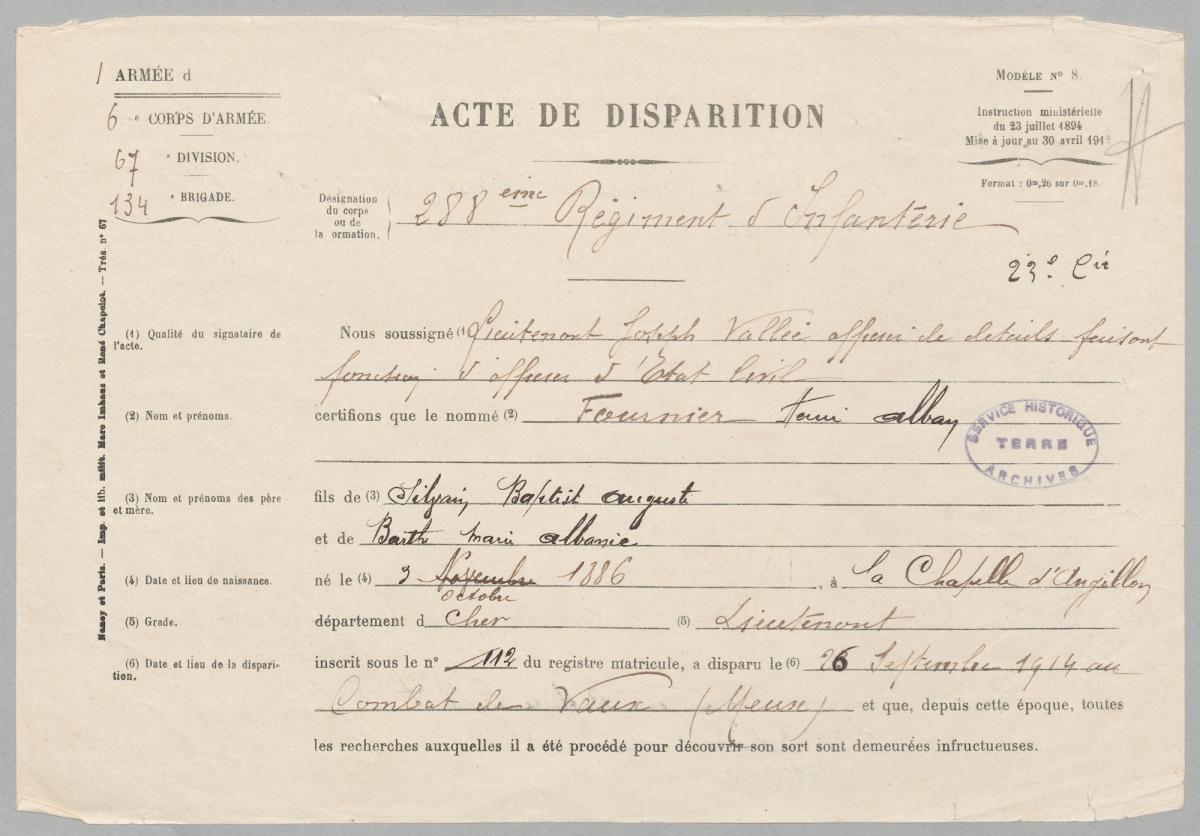 1 ARMÉE d
6 e CORPS D'ARMÉE.
67 e DIVISION.
134 e BRIGADE.
ACTE DE DISPARITION
MODÈLE N° 8.
Instruction ministérielle
du 23 juillet 1894
Mise à jour au 30 avril 191
Format : 0m,26 sur 0m,18.
Désignation
du corps
ou de
la ormation.
288 eme Régiment d'Infanterie
23e Cie
Nancy et Paris. — Imp. et lib. milit. Marc Imhaus et René Chapelot. — Trés. n° 67
(1) Qualité du signataire de
l'acte.
Nous soussigné (1) Lieutenant Joseph Vallée officier de détails faisant
d'officier d'Etat Civil
(2) Nom et prénoms.
certifions que le nommé (2) Fournier Henri alban
SERVICE HISTORIQUE
TERRE
ARCHIVES
(3) Nom et prénoms des père
et mère.
fils de (3) Silvain Baptist auguste
et de Barth marie albanie
(4) Date et lieu de naissance.
né le (4) 3 Novembre 1886 , à la Chapelle d'Angillon
octobre
(5) Grade.
département d Cher (5) Lieutenant
(6) Date et lieu de la dispari-
tion.
inscrit sous le n° 112 du registre matricule, a disparu le (6) 26 Septembre 1914 au
Combat de Vaux (Meuse) et que, depuis cette époque, toutes
les recherches auxquelles il a été procédé pour découvrir son sort sont demeurées infructueuses.